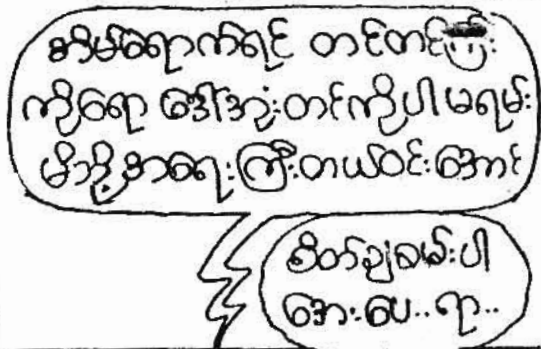 အိမ်ရောက်ရင် တင်တင်ကြီး
ကိုရော ဒေါ်အုံးတင်ကိုပါ မရမ်း
မိဘို့အရေးကြီးတယ်ဝင်းအောင်
စိတ်ချစမ်းပါ
အေးပေ..ရာ..